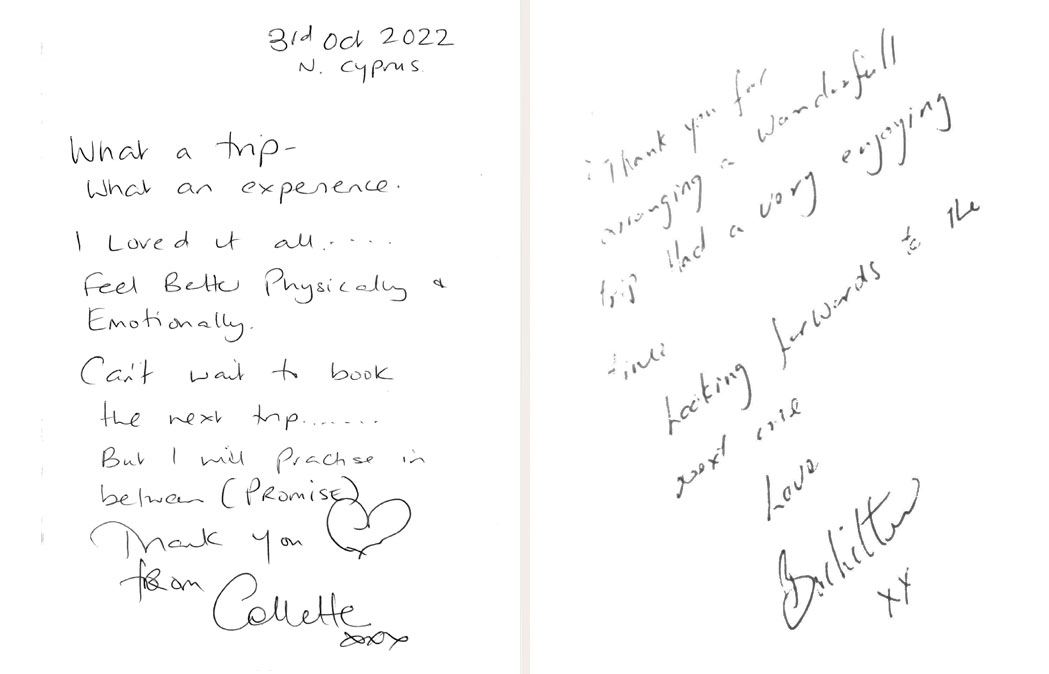 3rd Oct 2022
N. Cyprus.
What a trip-
What an experence.
I Loved it all.....
Feel Better Physically &
Emotionally.
Can't wait to book
the next trip.......
But I will Practise in
between (PROMISE)
Thank you
from
Collette
xxxx
Thank you for
arranging a wonderfull
trip Had a very enjoying
time
Looking forwards to the
next one
Love
xx